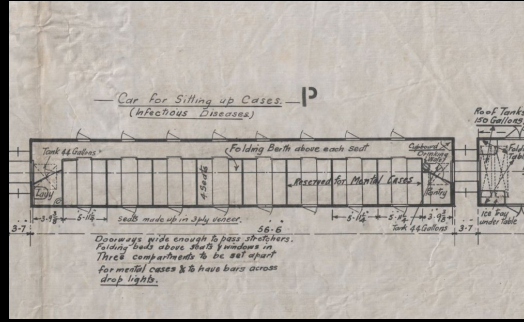 Car for Sitting up Cases. P
(Infectious Diseases)
Roof Tanks
150 Gallons
Tank 44 Gallons
Folding Berth above each seat
Cupboard
Folding
Table
4 Seats
Reserved for Mental Cases
Lavy
Pantry
3-9⅜
5-1
seats made up in 3 ply veneer.
5-1
5-1
3-9
Tank 44 Gallons
Ice Tray
under Table
3-7
56-6
3-7
Doorways wide enough to pass stretchers.
Folding beds above seats & windows in
Three compartments to be set apart
for mental cases & to have bars across
drop lights.